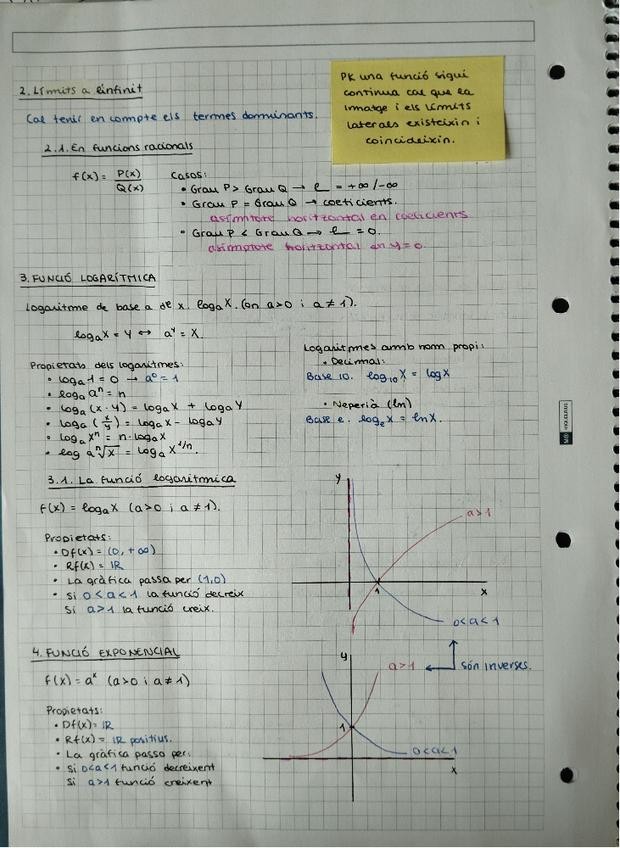 2. Límits a l'infinit
Cal tenir en compte els termes dominants.
PK una funció sigui
contínua cal que la
imatge i els límits
laterals existeixin i
coincideixin.
2.1. En funcions racionals
f(x) = P(x)/Q(x)
Casos:
• Grau P > Grau Q → l = +∞/-∞
• Grau P = Grau Q → coeficients.
asímptote horitzontal en coeficients
• Grau P < Grau Q → l = 0.
asímptote horitzontal en y=0.
3. FUNCIÓ LOGARÍTMICA
Logaritme de base a de x. logₐX. (on a>0 i a≠1).
logₐX = Y ↔ aʸ = X.
Propietats dels logaritmes:
• logₐ1 = 0 → a⁰ = 1
• logₐ aⁿ = n
• logₐ (x·y) = logₐX + logₐY
• logₐ (x/y) = logₐX - logₐY
• logₐ Xⁿ = n·logₐX
• log a ⁿ√x = logₐ X^1/n.
Logaritmes amb nom propi:
• Decimal:
Base 10. log₁₀X = logX
• Neperià (ln)
Base e. logₑX = lnX.
3.1. La funció logarítmica
f(x) = logₐX (a>0 i a≠1).
Propietats:
• Df(x) = (0, +∞)
• Rf(x) = IR
• La gràfica passa per (1,0)
• Si 0<a<1 la funció decreix
Si a>1 la funció creix.
y
a>1
1
x
0<a<1
4. FUNCIÓ EXPONENCIAL
f(x) = aˣ (a>0 i a≠1)
Propietats:
• Df(x) = IR
• Rf(x) = IR positius.
• La gràfica passa per:
• Si 0<a<1 funció decreixent
Si a>1 funció creixent
y
a>1
són inverses.
1
0<a<1
x